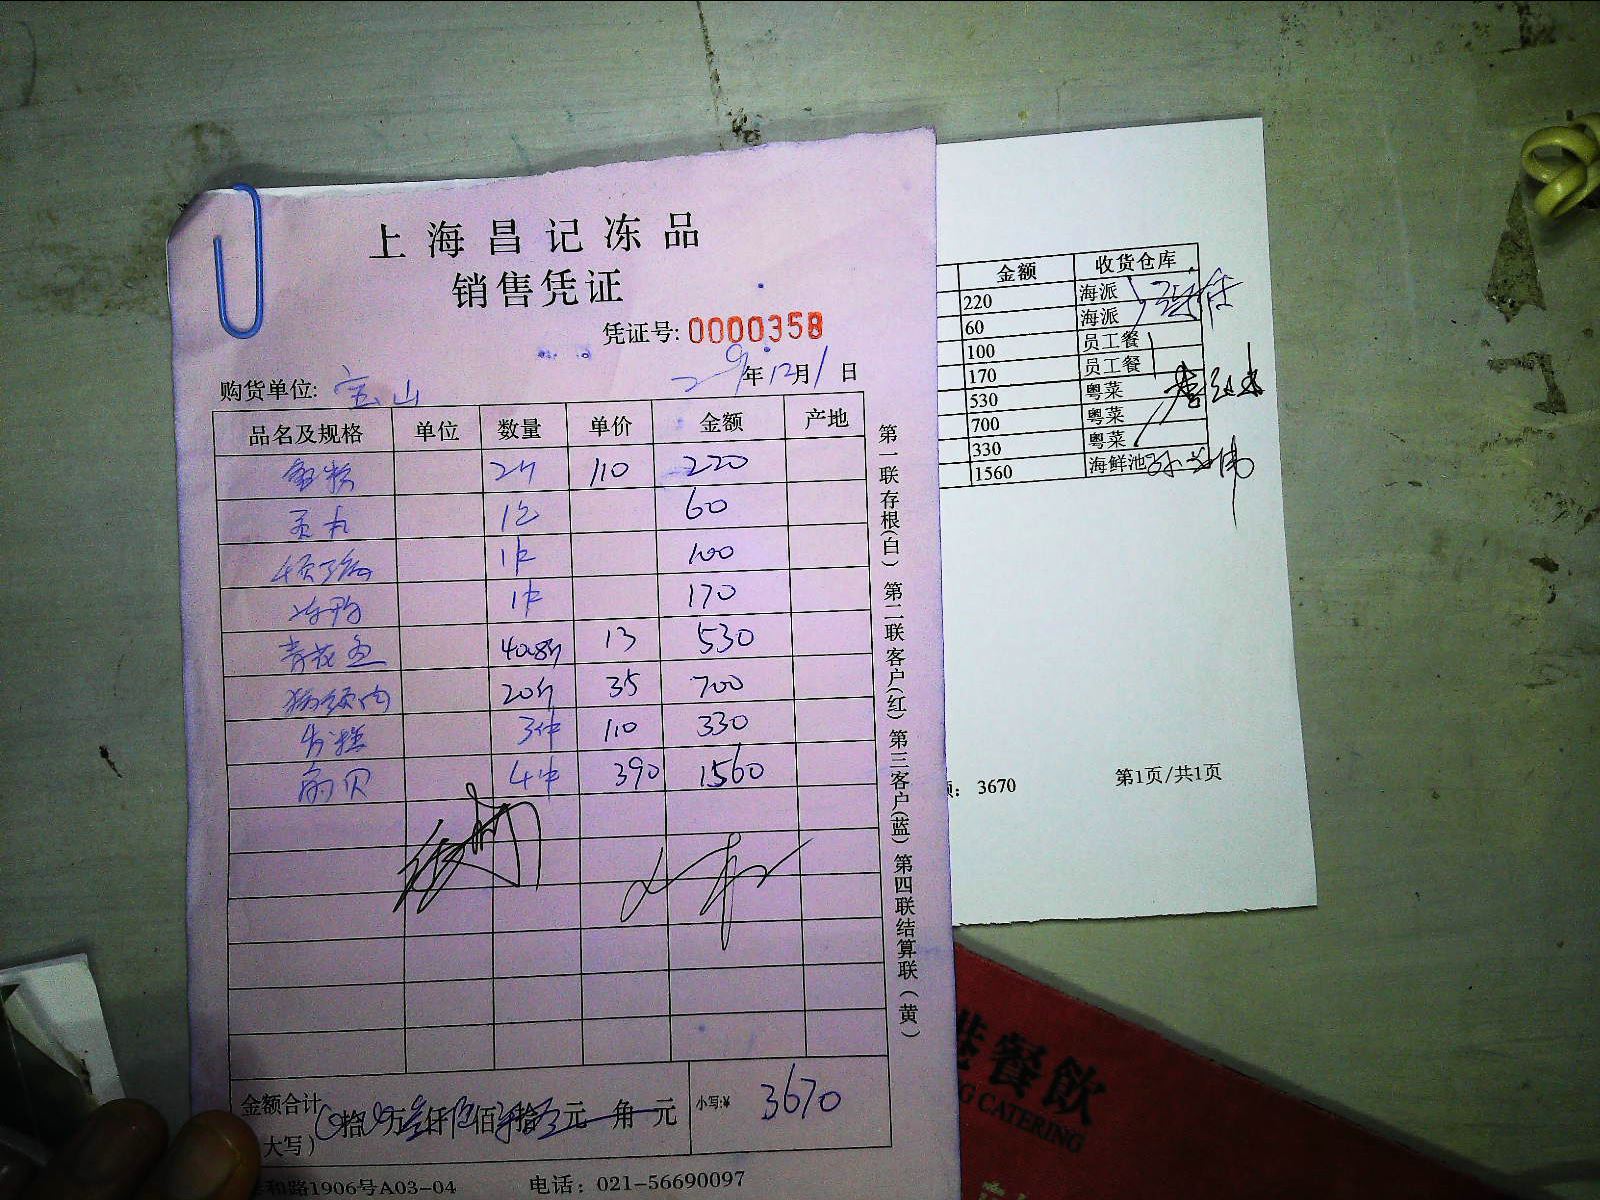 上海昌记冻品
销售凭证
凭证号: 0000358
购货单位: 宝山 年12月1日
品名及规格 单位 数量 单价 金额 产地
2斤 110 220
1包 60
1件 100
冻鸭 1件 170
青花鱼 40.8斤 13 530
猪颈肉 20斤 35 700
3件 110 330
扇贝 4件 390 1560
金额合计 拾 万叁仟陆佰 拾 元 角 元 小写:¥ 3670
大写)
和路1906号A03-04 电话: 021-56690097
第一联存根(白) 第二联客户(红) 第三客户(蓝) 第四联结算联(黄)
金额 收货仓库
220 海派
60 海派
100 员工餐
170 员工餐
530 粤菜
700 粤菜
330 粤菜
1560 海鲜池
: 3670 第1页/共1页
餐飲
G CATERING